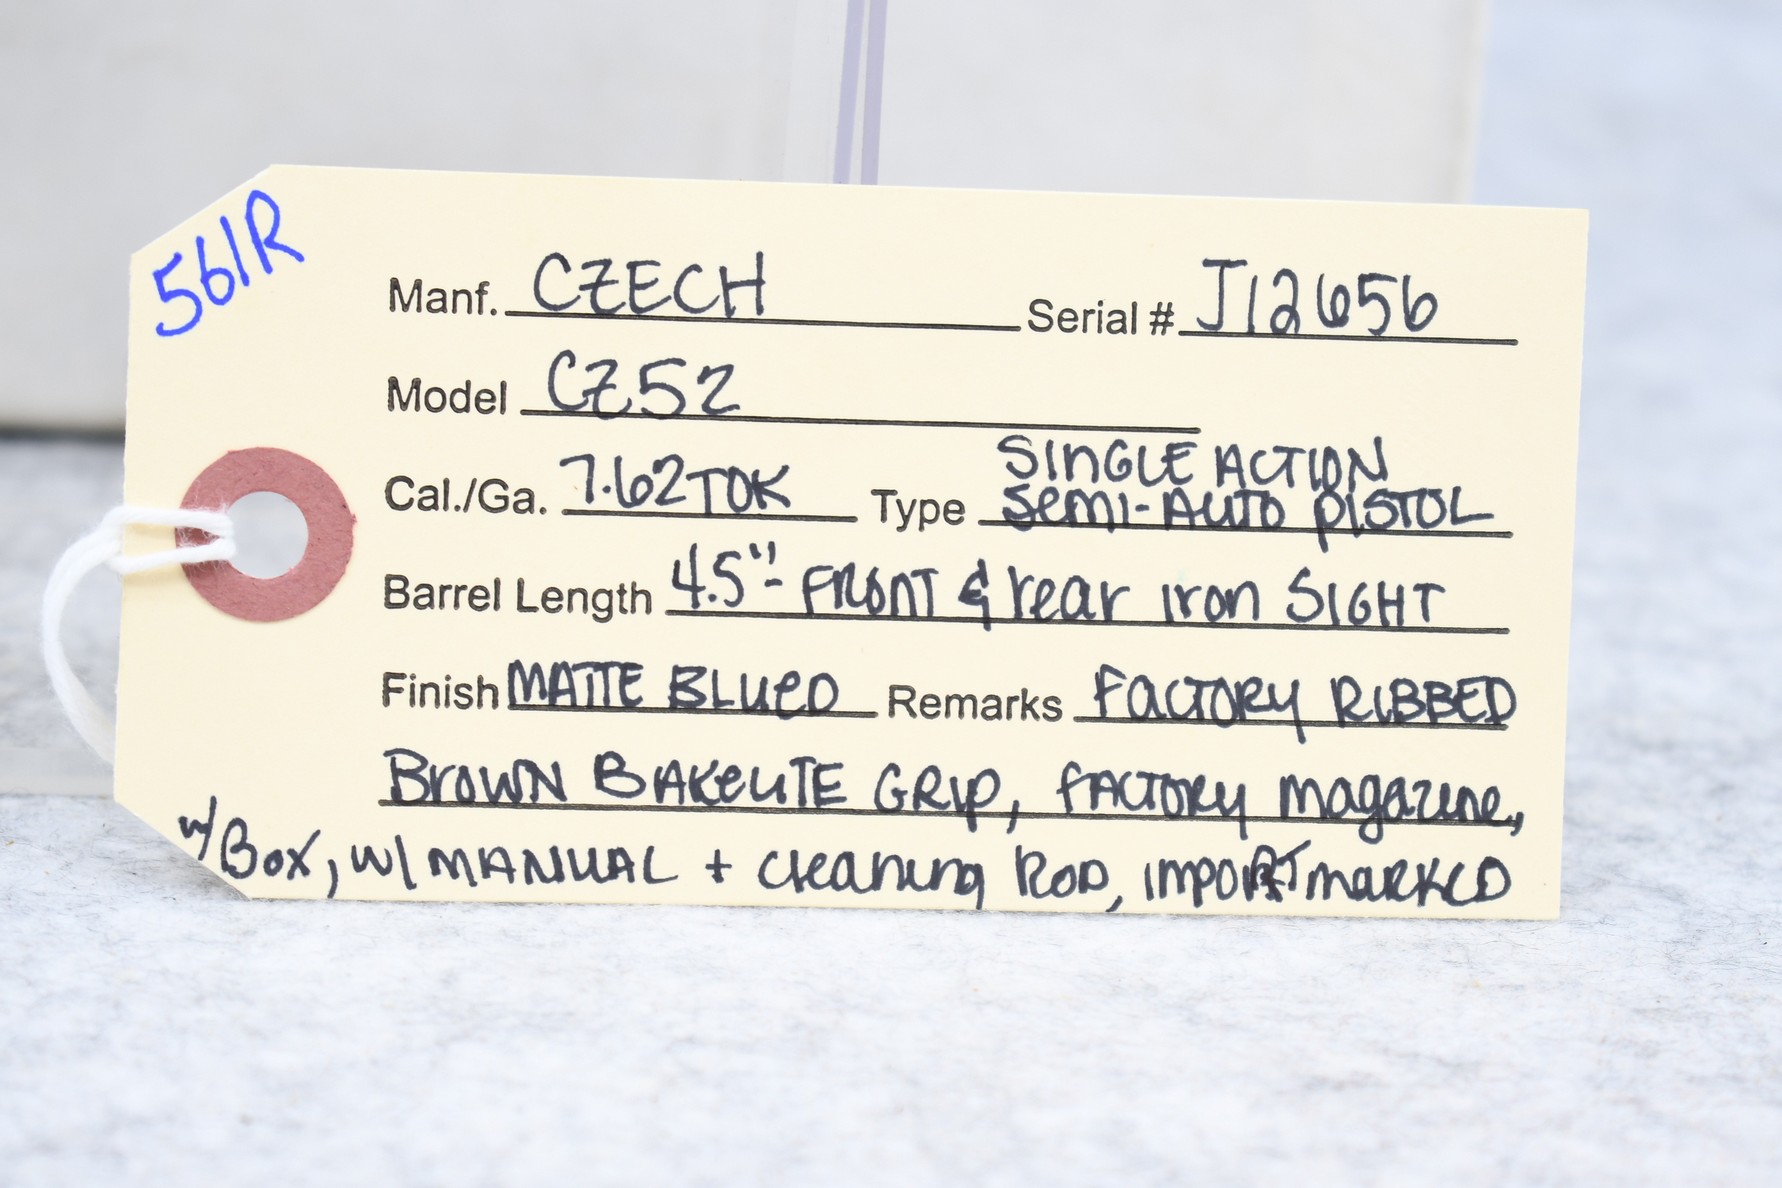 561R
Manf. CZECH Serial # J12656
Model CZ52
Cal./Ga. 7.62TOK Type SINGLE ACTION
Semi-AUTO PISTOL
Barrel Length 4.5"- FRONT & rear iron SIGHT
Finish MATTE BLUED Remarks FACTORY RIBBED
BROWN BAKELITE GRIP, FACTORY magazine,
w/Box, w/ MANUAL + cleaning ROD, IMPORT marked